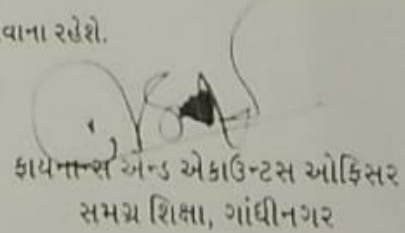 વાના રહેશે.
ફાયનાન્સ એન્ડ એકાઉન્ટસ ઓફિસર
સમગ્ર શિક્ષા, ગાંધીનગર